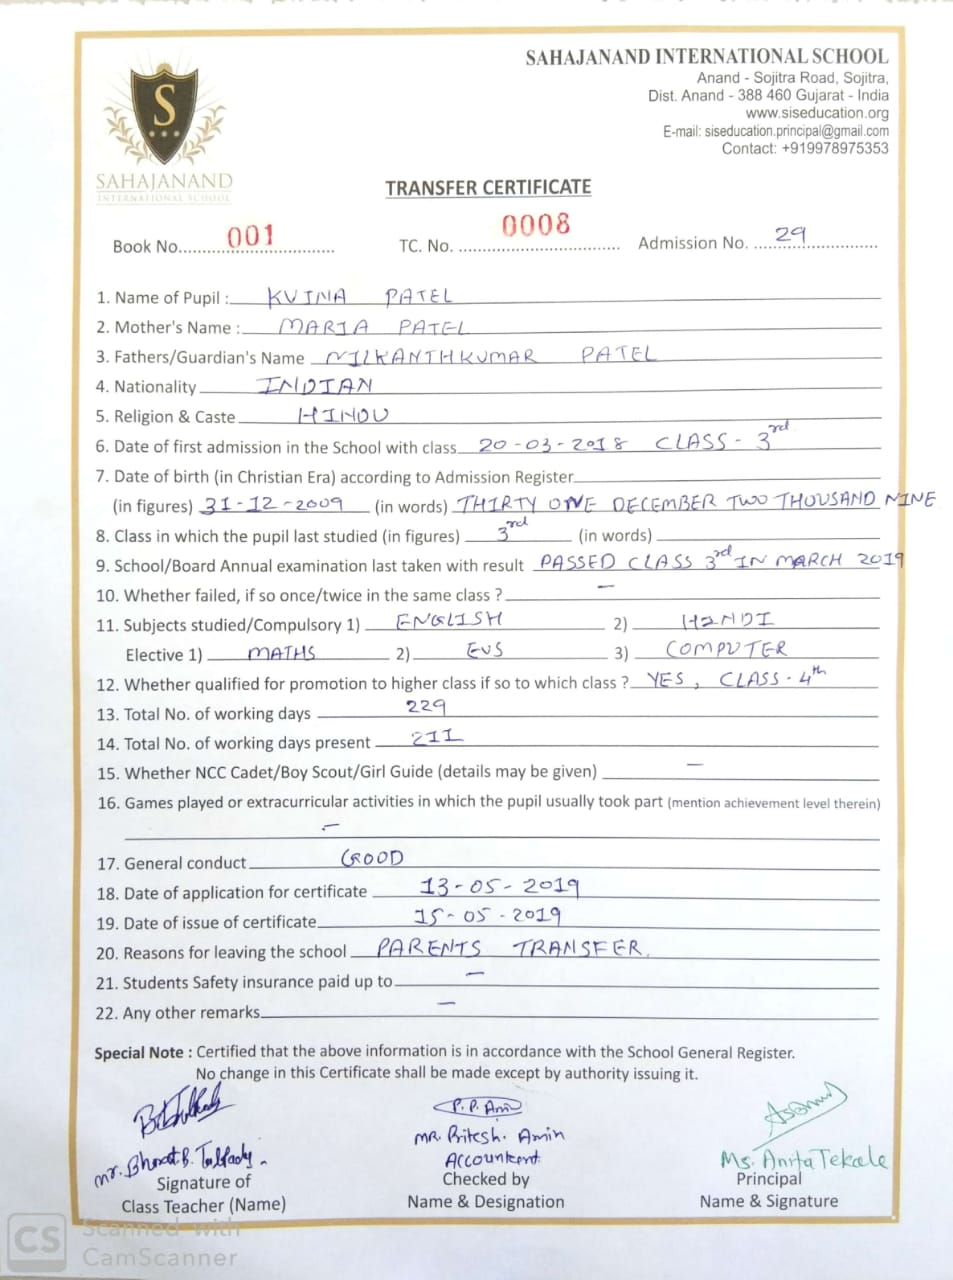 SAHAJANAND INTERNATIONAL SCHOOL
Anand - Sojitra Road, Sojitra,
Dist. Anand - 388 460 Gujarat - India
www.siseducation.org
E-mail: siseducation.principal@gmail.com
Contact: +919978975353
S
SAHAJANAND
INTERNATIONAL SCHOOL
TRANSFER CERTIFICATE
Book No. 001 TC. No. 0008 Admission No. 29
1. Name of Pupil : KVINA PATEL
2. Mother's Name : MARIA PATEL
3. Fathers/Guardian's Name NILKANTHKUMAR PATEL
4. Nationality INDIAN
5. Religion & Caste HINDU
6. Date of first admission in the School with class 20-03-2018 CLASS - 3rd
7. Date of birth (in Christian Era) according to Admission Register
(in figures) 31-12-2009 (in words) THIRTY ONE DECEMBER TWO THOUSAND NINE
8. Class in which the pupil last studied (in figures) 3rd (in words)
9. School/Board Annual examination last taken with result PASSED CLASS 3rd IN MARCH 2019
10. Whether failed, if so once/twice in the same class ? –
11. Subjects studied/Compulsory 1) ENGLISH 2) HINDI
Elective 1) MATHS 2) EVS 3) COMPUTER
12. Whether qualified for promotion to higher class if so to which class ? YES, CLASS - 4th
13. Total No. of working days 229
14. Total No. of working days present 211
15. Whether NCC Cadet/Boy Scout/Girl Guide (details may be given) –
16. Games played or extracurricular activities in which the pupil usually took part (mention achievement level therein)
–
17. General conduct GOOD
18. Date of application for certificate 13-05-2019
19. Date of issue of certificate 15-05-2019
20. Reasons for leaving the school PARENTS TRANSFER.
21. Students Safety insurance paid up to –
22. Any other remarks –
Special Note : Certified that the above information is in accordance with the School General Register.
No change in this Certificate shall be made except by authority issuing it.
P. P. Amin
Mr. Bharat B. MR. Britesh. Amin
Accountent. Ms. Anita Tekale
Signature of Checked by Principal
Class Teacher (Name) Name & Designation Name & Signature
CS Scanned with
CamScanner